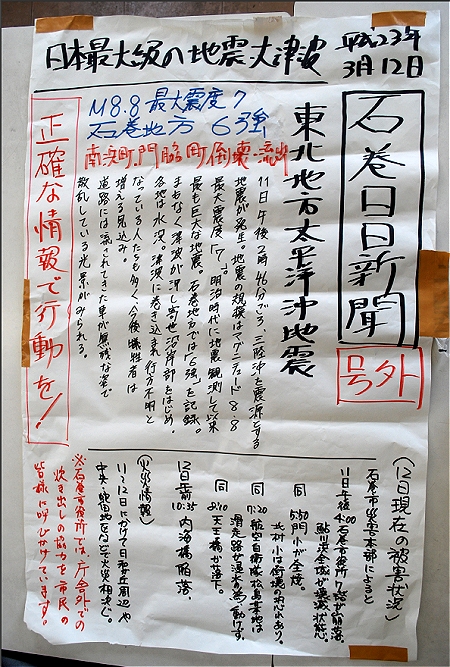 日本最大級の地震・大津波
平成23年
3月12日
石巻日日新聞
号外
東北地方太平洋沖地震
M8.8 最大震度7
石巻地方 6強
南浜町、門脇町倒壊・流出
正確な情報で行動を!
11日午後2時46分ごろ、三陸沖を震源とする
地震が発生。地震の規模はマグニチュード8.8
最大震度「7」。明治時代に地震観測して以来
最も巨大な地震。石巻地方では「6強」を記録。
まもなく津波が押し寄せ沿岸部をはじめ、
各地は水没。津波に巻き込まれ行方不明と
なっている人たちも多く、今後犠牲者は
増える見込み。
道路には流されてきた車が無残な姿で
散乱している光景がみられる。
(12日現在の被害状況)
石巻市災害本部によると
11日午後4:00 石巻市役所1階が
鮎川浜全域が壊滅状態。
同 5:50 門小が全焼。
北村小は倒壊の恐れあり。
同 7:20 航空自衛隊松島基地は
滑走路が浸水着で動けず。
同 8:10 天王橋が落下。
12日午前10:35 内海橋陥落。
(火災情報)
11〜12日にかけて日和が丘周辺や
中央、蛇田地区などで火災相次ぐ。
※石巻市役所では、庁舎外での
炊き出しの協力を市民の
皆様に呼びかけています。